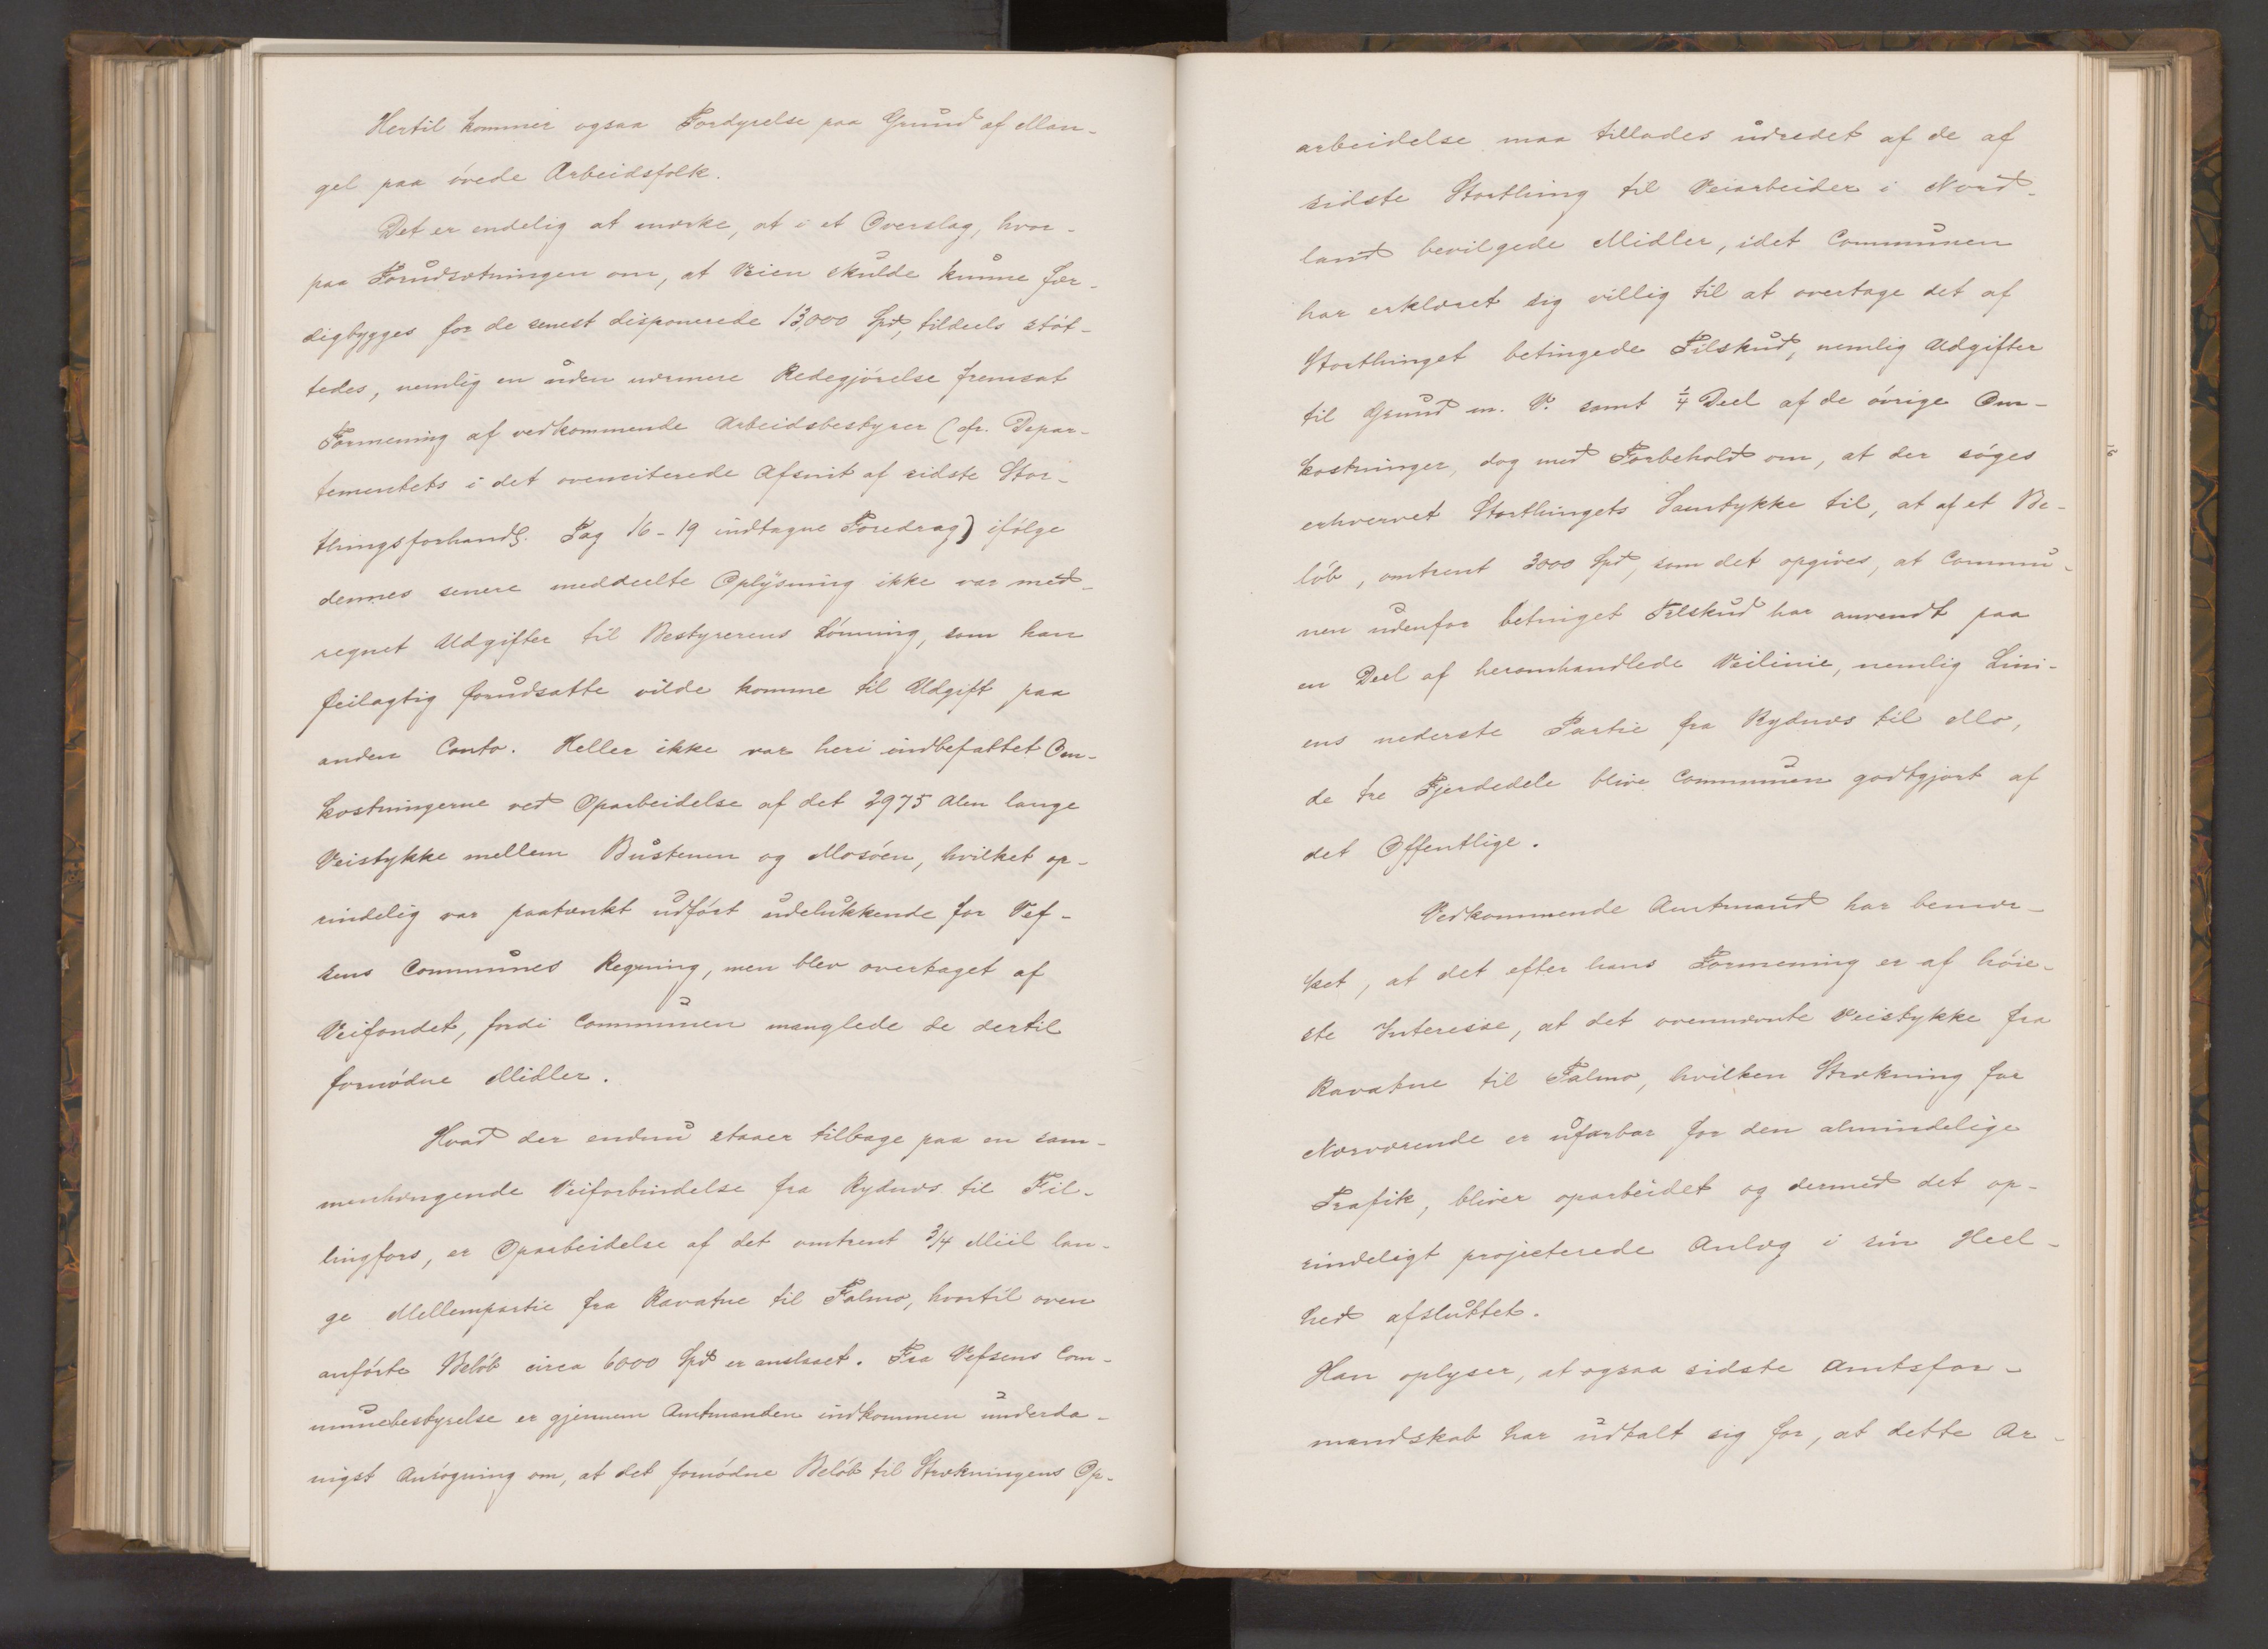 Hertil kommer ogsaa Fordyrelse paa Grund af Man-
gel paa övede Arbeidsfolk.
Det er endelig at mærke, at i et Overslag, hvor-
paa Forudsætningen om, at Veien skulde kunne fær-
digbygges for de senest disponerede 13,000 Spd, tildeels stöt-
tedes, nemlig en uden nærmere Redegjörelse fremsat
Formening af vedkommende Arbeidsbestyrer (cfr. Depar-
tementets i det ovenciterede Afsnit af sidste Stor-
thingsforhandl. Pag 16-19 indtagne Foredrag) ifölge
dennes senere meddeelte Oplysning ikke var med-
regnet Udgifter til Bestyrerens Lönning, som han
feilagtig forudsatte vilde komme til Udgift paa
anden Conto. Heller ikke var heri indbefattet Om-
kostningerne ved Oparbeidelse af det 2975 Alen lange
Veistykke mellem Bustenen og Mosöen, hvilket op-
rindelig var paatænkt udfört udelukkende for Vef-
sens Communes Regning, men blev overtaget af
Veifondet, fordi Communen manglede de dertil
fornödne Midler.
Hvad der endnu staaer tilbage paa en sam-
menhængende Veiforbindelse fra Rydnæs til Fil-
lingfors, er Oparbeidelse af det omtrent 3/4 Miil lan-
ge Mellemparti fra Ravatne til Falmo, hvortil oven
anförte Belöb circa 6000 Spd er anslaaet. Fra Vefsens Com-
munebestyrelse er gjennem Amtmanden indkommen underda-
nigst Ansögning om, at det fornödne Belöb til Strækningens Op-
arbeidelse maa tillades udredet af de af
sidste Storthing til Veiarbeider i Nord-
land bevilgede Midler, idet Communen
har erklæret sig villig til at overtage det af
Storthinget betingede Tilskud, nemlig Udgifter
til Grund m. V. samt 1/4 Deel af de övrige Om-
kostninger, dog med Forbehold om, at der söges
erhvervet Storthingets Samtykke til, at af et Be-
löb, omtrent 3000 Spd, som det opgives, at Commu-
nen udenfor betinget Tilskud har anvendt paa
en Deel af heromhandlede Veilinie, nemlig Lini-
ens nederste Partie fra Rydnæs til Mo,
de tre Fjerdedele blive Communen godtgjort af
det Offentlige.
Vedkommende Amtmand har bemær-
ket, at det efter hans Formening er af höie-
ste Interesse, at det ovennævnte Veistykke fra
Ravatne til Falmo, hvilken Strækning for
Nærværende er ufarbar for den almindelige
Trafik, bliver oparbeidet og dermed det op-
rindeligt projecterede Anlæg i sin Heel-
hed afsluttet.
Han oplyser, at ogsaa sidste Amtsfor-
mandskab har udtalt sig for, at dette Ar-